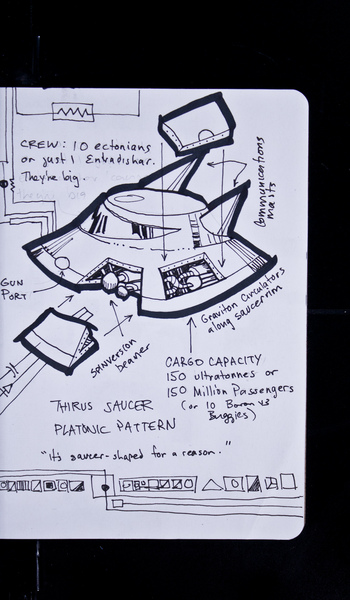 CREW: 10 ectonians
or just 1 Enkadishar.
They're big.
Communications
masts
GUN
PORT
Graviton Circulators
along saucer rim
Spinversion
beamer
CARGO CAPACITY
150 ultratonnes or
150 Million Passengers
(or 10 V3
Buggies)
THIRUS SAUCER
PLATONIC PATTERN
"It's saucer-shaped for a reason."